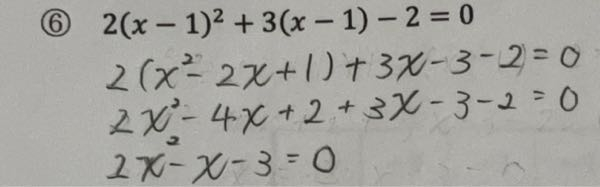 ⑥ 2(x − 1)² + 3(x − 1) − 2 = 0
2(x² - 2x + 1) + 3x - 3 - 2 = 0
2x² - 4x + 2 + 3x - 3 - 2 = 0
2x² - x - 3 = 0